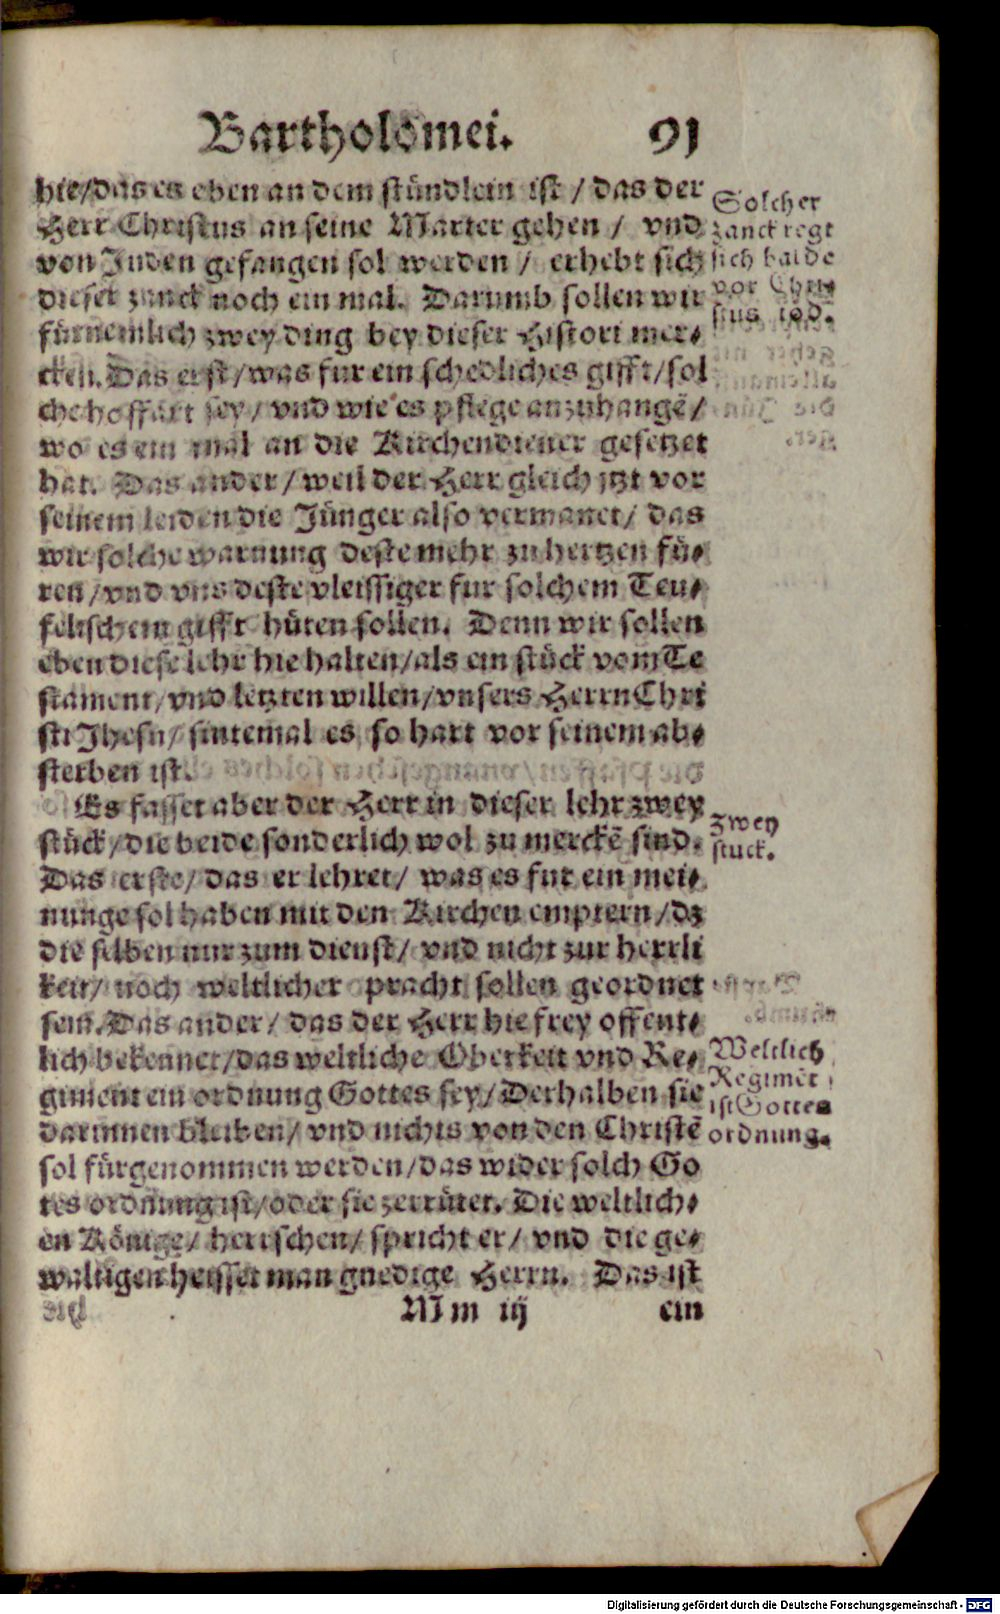 Bartholomei. 91
hie/das es eben an dem stündlein ist / das der
Herr Christus an seine Marter gehen / vnd
von Jüden gefangen sol werden / erhebt sich
dieser zanck noch ein mal. Darumb sollen wir
fürnemlich zwey ding bey dieser Histori mer⸗
cken. Das erst/was fur ein schedliches gifft/sol
che hoffart sey/ vnd wie es pflege anzuhangē/
wo es ein mal an die Kirchendiener gesetzet
hat. Das ander/weil der Herr gleich jtzt vor
seinem leiden die Jünger also vermanet/ das
wir solche warnung deste mehr zu hertzen fü⸗
ren/vnd vns deste vleissiger fur solchem Teu⸗
felischem gifft hüten sollen. Denn wir sollen
eben diese lehr hie halten/als ein stück vom Te
stament/vnd letzten willen/vnsers Herrn Chri
sti Jhesu/ sintemal es so hart vor seinem ab⸗
sterben ist.
Es fasset aber der Herr in dieser lehr zwey
stück/die beide sonderlich wol zu merckē sind.
Das erste/das er lehret/ was es fur ein mei⸗
nunge sol haben mit den Kirchen emptern/dz
die selben nur zum dienst/ vnd nicht zur herrli
keit/ noch weltlicher pracht sollen geordnet
sein. Das ander/ das der Herr hie frey offent⸗
lich bekennet/das weltliche Oberkeit vnd Re⸗
giment ein ordnung Gottes sey/Derhalben sie
darinnen bleiben/ vnd nichts von den Christē
sol fürgenommen werden/das wider solch Go
tes ordnung ist/oder sie zerrütet. Die weltlich⸗
en Könige/ herrschen/ spricht er/ vnd die ge⸗
waltigen heisset man gnedige Herrn. Das ist
Mm iij ein
Solcher
zanck regt
sich balde
vor Chri⸗
stus tod.
Zwey
stuck.
Weltlich
Regimēt
ist Gottes
ordnung.
Digitalisierung gefördert durch die Deutsche Forschungsgemeinschaft - DFG